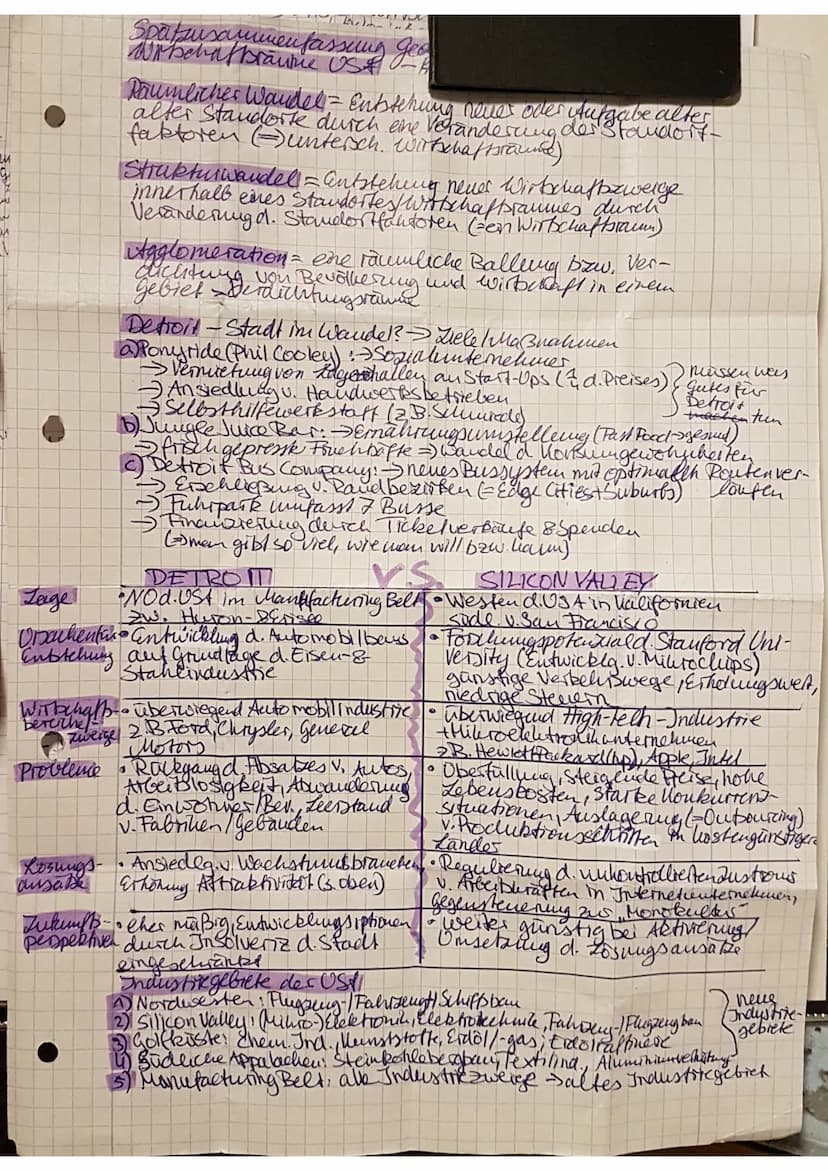 Spätzusammenfassung Geo
Wirtschaftsräume USA
Räumlicher Wandel = Entstehung neuer oder Aufgabe alter
alter Standorte durch eine Veränderung der Standort-
faktoren (=> untersch. Wirtschaftsräume)
Strukturwandel = Entstehung neuer Wirtschaftszweige
innerhalb eines Standortes/Wirtschaftsraumes durch
Veränderung d. Standortfaktoren (= ein Wirtschaftsraum)
Agglomeration = eine räumliche Ballung bzw. Ver-
dichtung von Bevölkerung und Wirtschaft in einem
Gebiet → Verdichtungsräume
Detroit – Stadt im Wandel? → Ziele/Maßnahmen
a) Ponyride (Phil Cooley): → Sozialunternehmer
→ Vermietung von Lagerhallen an Start-Ups (d. Preises)
→ Ansiedlung v. Handwerksbetrieben
→ Selbsthilfewerkstatt (z.B. Schmiede)
müssen was
gutes für
Detroit
machen tun
b) Jungle Juice Bar: → Ernährungsumstellung (Fast Food → gesund)
→ frischgepresste Fruchtsäfte => Wandel d. Konsumgewohnheiten
c) Detroit Bus Company: → neues Bussystem mit optimalen Routenver-
läufen
→ Erschließung v. Randbezirken (= Edge Cities + Suburbs)
→ Fuhrpark umfasst 7 Busse
→ Finanzierung durch Ticketverkäufe & Spenden
(=> man gibt so viel, wie man will bzw. kann)
DETROIT VS. SILICON VALLEY
Lage
• NO d. USA im Manufacturing Belt
zw. Huron- & Eriesee
• Westen d. USA in Kalifornien
südl. v. San Francisco
Ursachen für
Entstehung
• Entwicklung d. Automobilbaus
auf Grundlage d. Eisen- &
Stahlindustrie
• Forschungspotenzial d. Stanford Uni-
versity (Entwicklg. v. Mikrochips)
günstige Verkehrswege, Erholungswert,
niedrige Steuern
Wirtschafts-
bereiche/
zweige
• überwiegend Automobilindustrie
z.B. Ford, Chrysler, General
Motors
• überwiegend High-tech-Industrie
+ Mikroelektronikunternehmen
z.B. Hewlett Packard (hp), Apple, Intel
Probleme
• Rückgang d. Absatzes v. Autos,
Arbeitslosigkeit, Abwanderung
d. Einwohner/Bev., Leerstand
v. Fabriken/Gebäuden
• Überfüllung, Steigende Preise, hohe
Lebenskosten, Starke Konkurrenz-
situationen, Auslagerung (= Outsourcing)
v. Produktionsschritten in kostengünstigere
Länder
Lösungs-
ansätze
• Ansiedlg. v. Wachstumsbranchen,
Erhöhung Attraktivität (s. oben)
• Regulierung d. unkontrollierten Zustroms
v. Arbeitskräften in Internetunternehmen,
Gegensteuerung zur „Monokultur"
Zukunfts-
perspektiven
• eher mäßig, Entwicklungsoptionen
durch Insolvenz d. Stadt
eingeschränkt
• weiter günstig bei Aktivierung/
Umsetzung d. Lösungsansätze
Industriegebiete der USA
1) Nordwesten: Flugzeug-/Fahrzeug-/Schiffbau
2) Silicon Valley: (Mikro-)Elektronik, Elektrotechnik, Fahrzeug-/Flugzeugbau
3) Golfküste: chem. Ind., Kunststoffe, Erdöl/-gas, Erdölraffinerie
4) Südliche Appalachen: Steinkohlebergbau, Textilind., Aluminiumverhüttung
5) Manufacturing Belt: alle Industriezweige → altes Industriegebiet
neue
Industrie-
gebiete